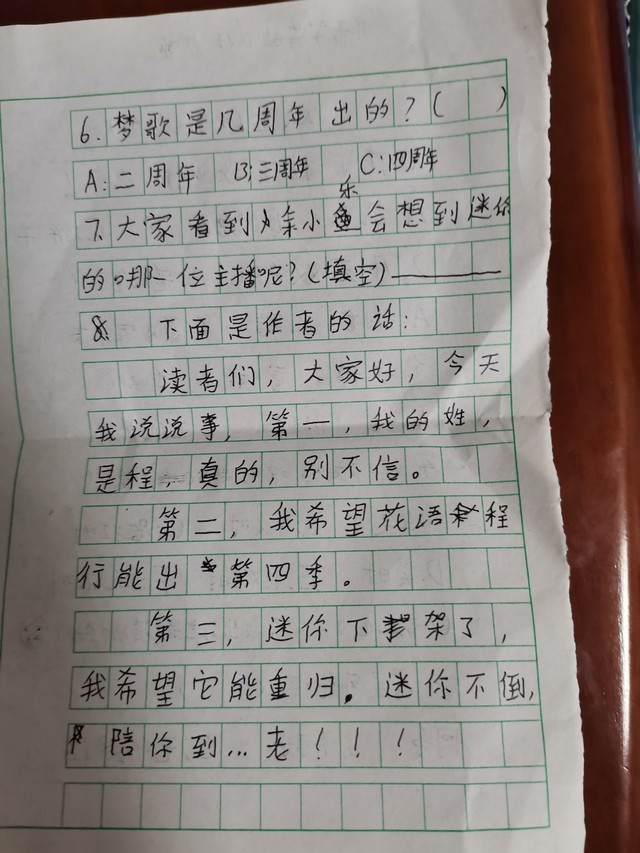 6.梦歌是几周年出的？( )
A:二周年 B:三周年 C:四周年
7.大家看到余小乐会想到迷你
的哪一位主播呢？(填空)
8. 下面是作者的话：
读者们，大家好，今天
我说说事，第一，我的姓，
是程，真的，别不信。
第二，我希望花语程
行能出第四季。
第三，迷你下架了，
我希望它能重归。迷你不倒，
陪你到…老！！！